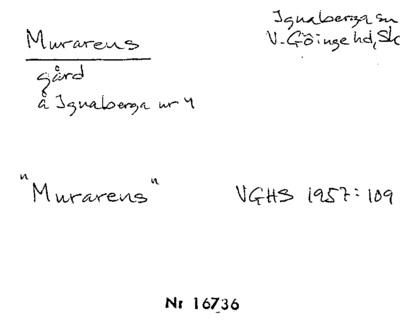 Murarens
gård
å Ignaberga nr 4
Ignaberga sn
V. Göinge hd, Sk
"Murarens"
VGHS 1957:109
Nr 16736